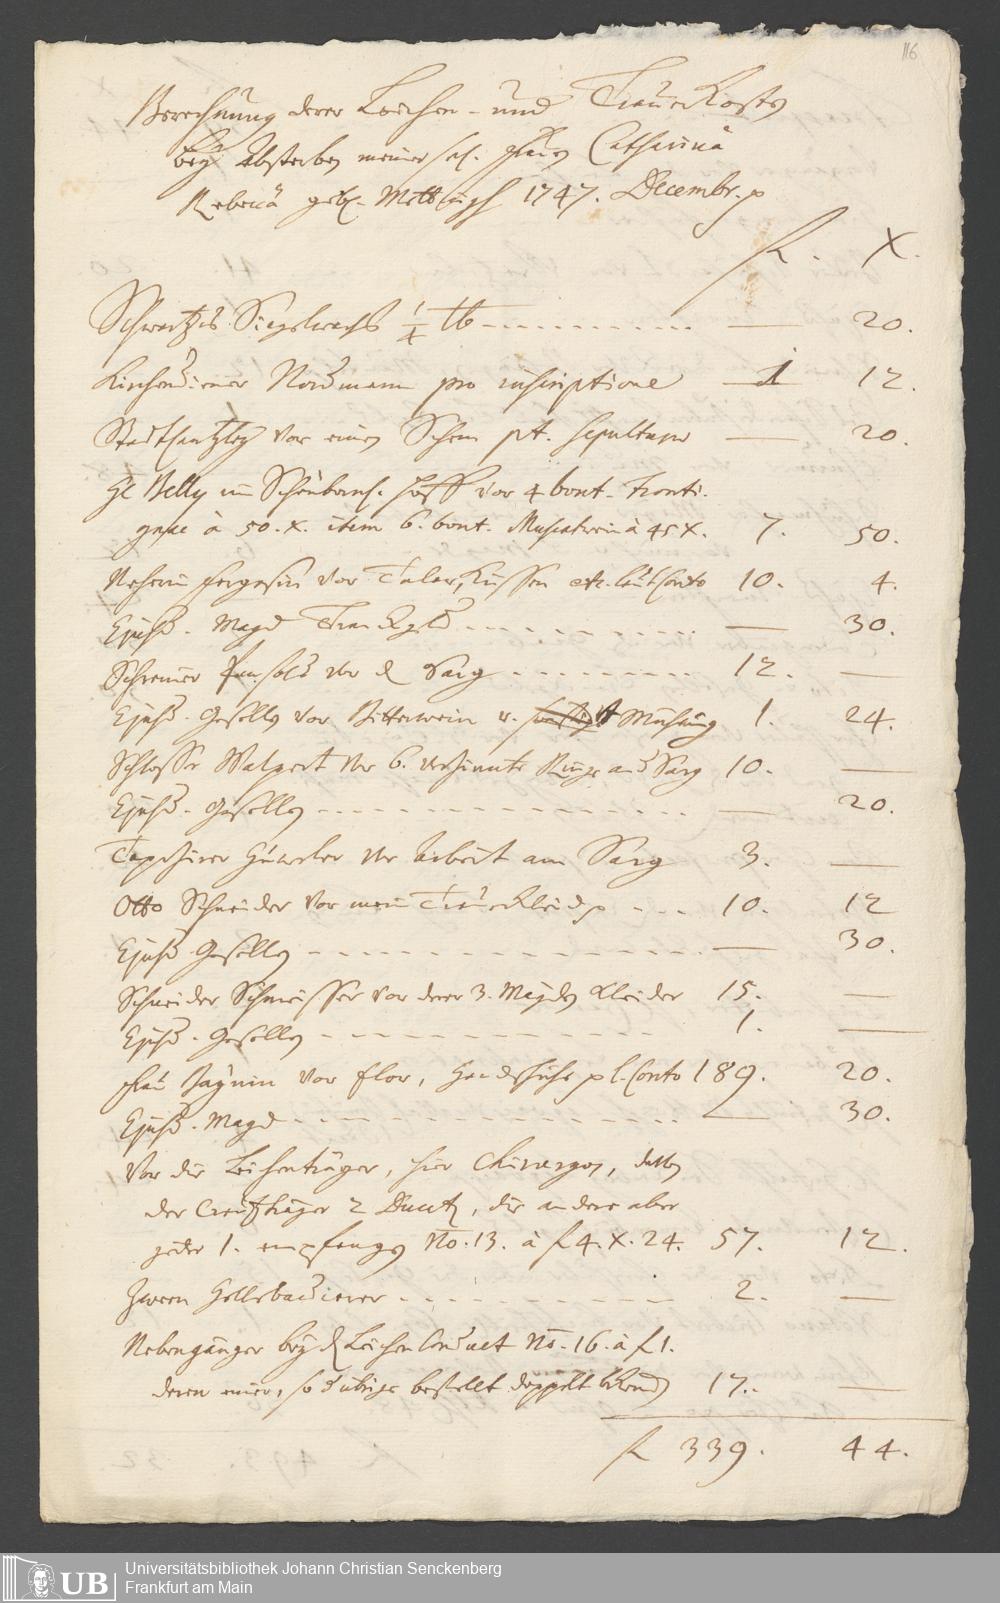 116
Berechnung derer Leichen- und Trauer Kosten
bey Absterben meiner sel. Frauen Catharina
Rebecca geb. Mettingh 1747. Decembr. p
fl. X.
Schwartzes Siegelwachs ¼ lb — 20.
Kirchendiener Naumann pro inscriptione 1 12.
Stadtkantzley vor einen Schein pt. sepulturae — 20.
H. Belly im Schönborns. Hoff vor 4 bout. Fronti-
gnac à 50. X. item 6. bout. Muscatwein à 45 X. 7. 50.
Neherin vor Talar, Küssen etc. laut Conto 10. 4.
Ejusd. Magd Tranckgeld — 30.
Schreiner vor d Sarg 12. —
Ejusd. Gesellen vor Bitterwein u. Mühung 1. 24.
Schlosser Walpert vor 6. verzinnte Ringe an d Sarg 10. —
Ejusd. Gesellen — 20.
Tapezirer vor Arbeit am Sarg 3. —
Otto Schneider vor mein Trauer Kleid p 10. 12
Ejusd Gesellen — 30.
Schneider Schmeisser vor derer 3. Mägden Kleider 15. —
Ejusd. Gesellen 1. —
Frau vor Flor, Handschuhe p l. Conto 189. 20.
Ejusd. Magd — 30.
Vor die Leichenträger, hier Chirurgos,
der Creutzträger 2 Ducat, die andere aber
jeder 1. empfangen No. 13. à fl 4. X. 24. 57. 12.
Zween 2. —
Nebengänger bey d Leichen Conduct No. 16. à fl 1.
deren einer, so d übrige bestellt doppelt 17. —
fl 339. 44.
UB
Universitätsbibliothek Johann Christian Senckenberg
Frankfurt am Main